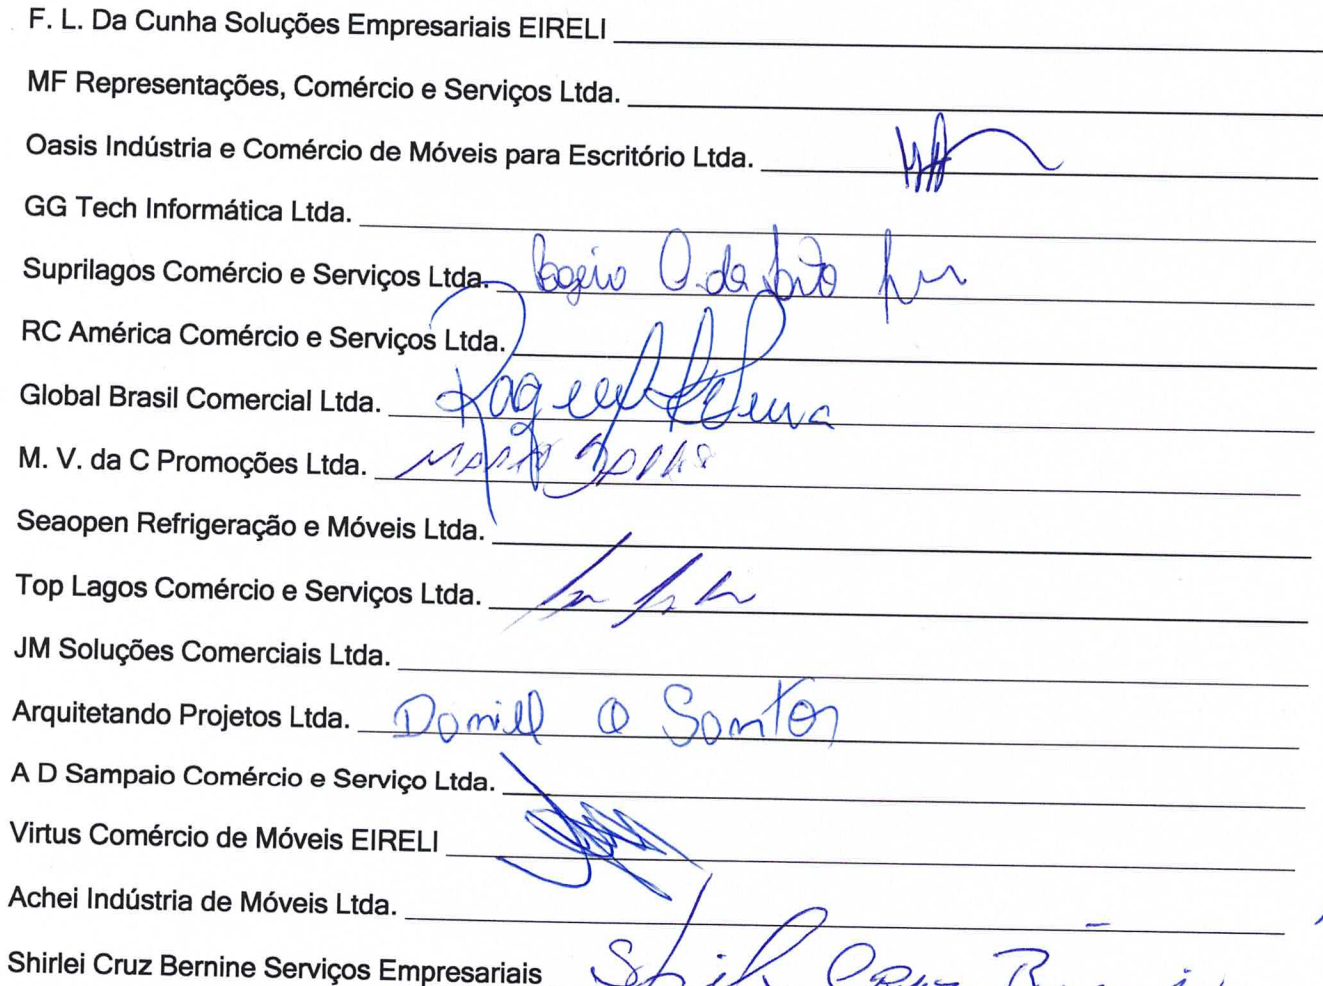 F. L. Da Cunha Soluções Empresariais EIRELI
MF Representações, Comércio e Serviços Ltda.
Oasis Indústria e Comércio de Móveis para Escritório Ltda.
GG Tech Informática Ltda.
Suprilagos Comércio e Serviços Ltda.
RC América Comércio e Serviços Ltda.
Global Brasil Comercial Ltda.
M. V. da C Promoções Ltda.
Seaopen Refrigeração e Móveis Ltda.
Top Lagos Comércio e Serviços Ltda.
JM Soluções Comerciais Ltda.
Arquitetando Projetos Ltda. Daniel O Santos
A D Sampaio Comércio e Serviço Ltda.
Virtus Comércio de Móveis EIRELI
Achei Indústria de Móveis Ltda.
Shirlei Cruz Bernine Serviços Empresariais